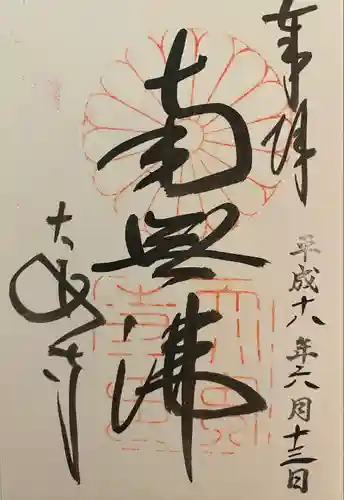 奉拝
平成十八年六月十三日
南無佛
大安寺